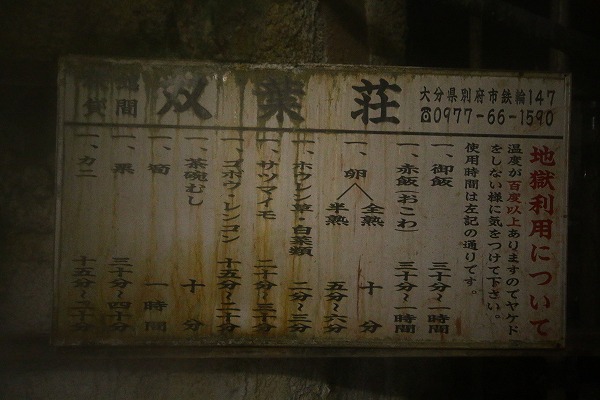 双葉荘
大分県別府市鉄輪147
☎0977-66-1590
地獄利用について
温度が百度以上ありますのでヤケド
をしない様に気をつけて下さい。
使用時間は左記の通りです。
一、御飯 三十分〜一時間
一、赤飯(おこわ) 三十分〜一時間
一、卵 全熟 十分
半熟 五分〜六分
一、ホウレン草・白菜類 二分〜三分
一、サツマイモ 二十分〜三十分
一、ゴボウ・レンコン 十五分〜二十分
一、茶碗むし 十分
一、筍 一時間
一、栗 三十分〜四十分
一、カニ 十五分〜二十分